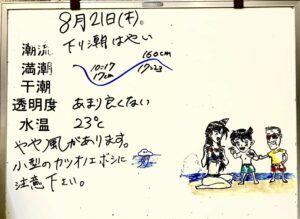 8月21日(木)。
潮流 下り潮はやい
160cm
満潮 10:17 17:23
17cm
干潮
透明度 あまり良くない
水温 23℃
やや風があります。
小型のカツオノエボシに
注意下さい。